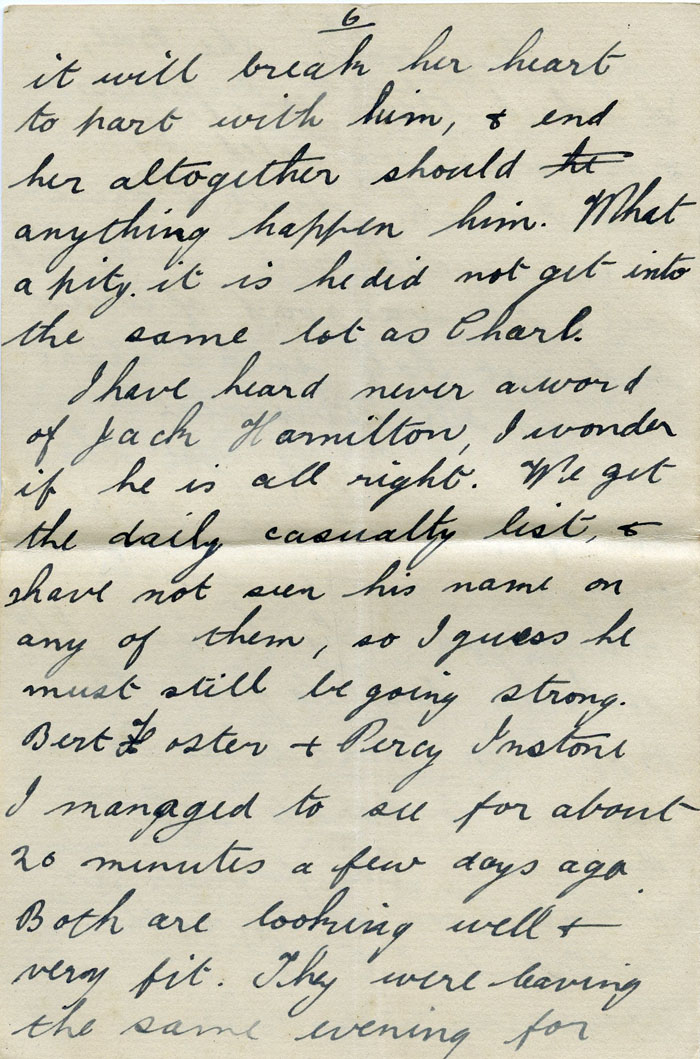 6
it will break her heart
to part with him, & end
her altogether should he
anything happen him. What
a pity. it is he did not get into
the same lot as Charl.
I have heard never a word
of Jack Hamilton, I wonder
if he is all right. We get
the daily casualty list, &
have not seen his name on
any of them, so I guess he
must still be going strong.
Bert Foster + Percy Instone
I managed to see for about
20 minutes a few days ago.
Both are looking well +
very fit. They were leaving
the same evening for